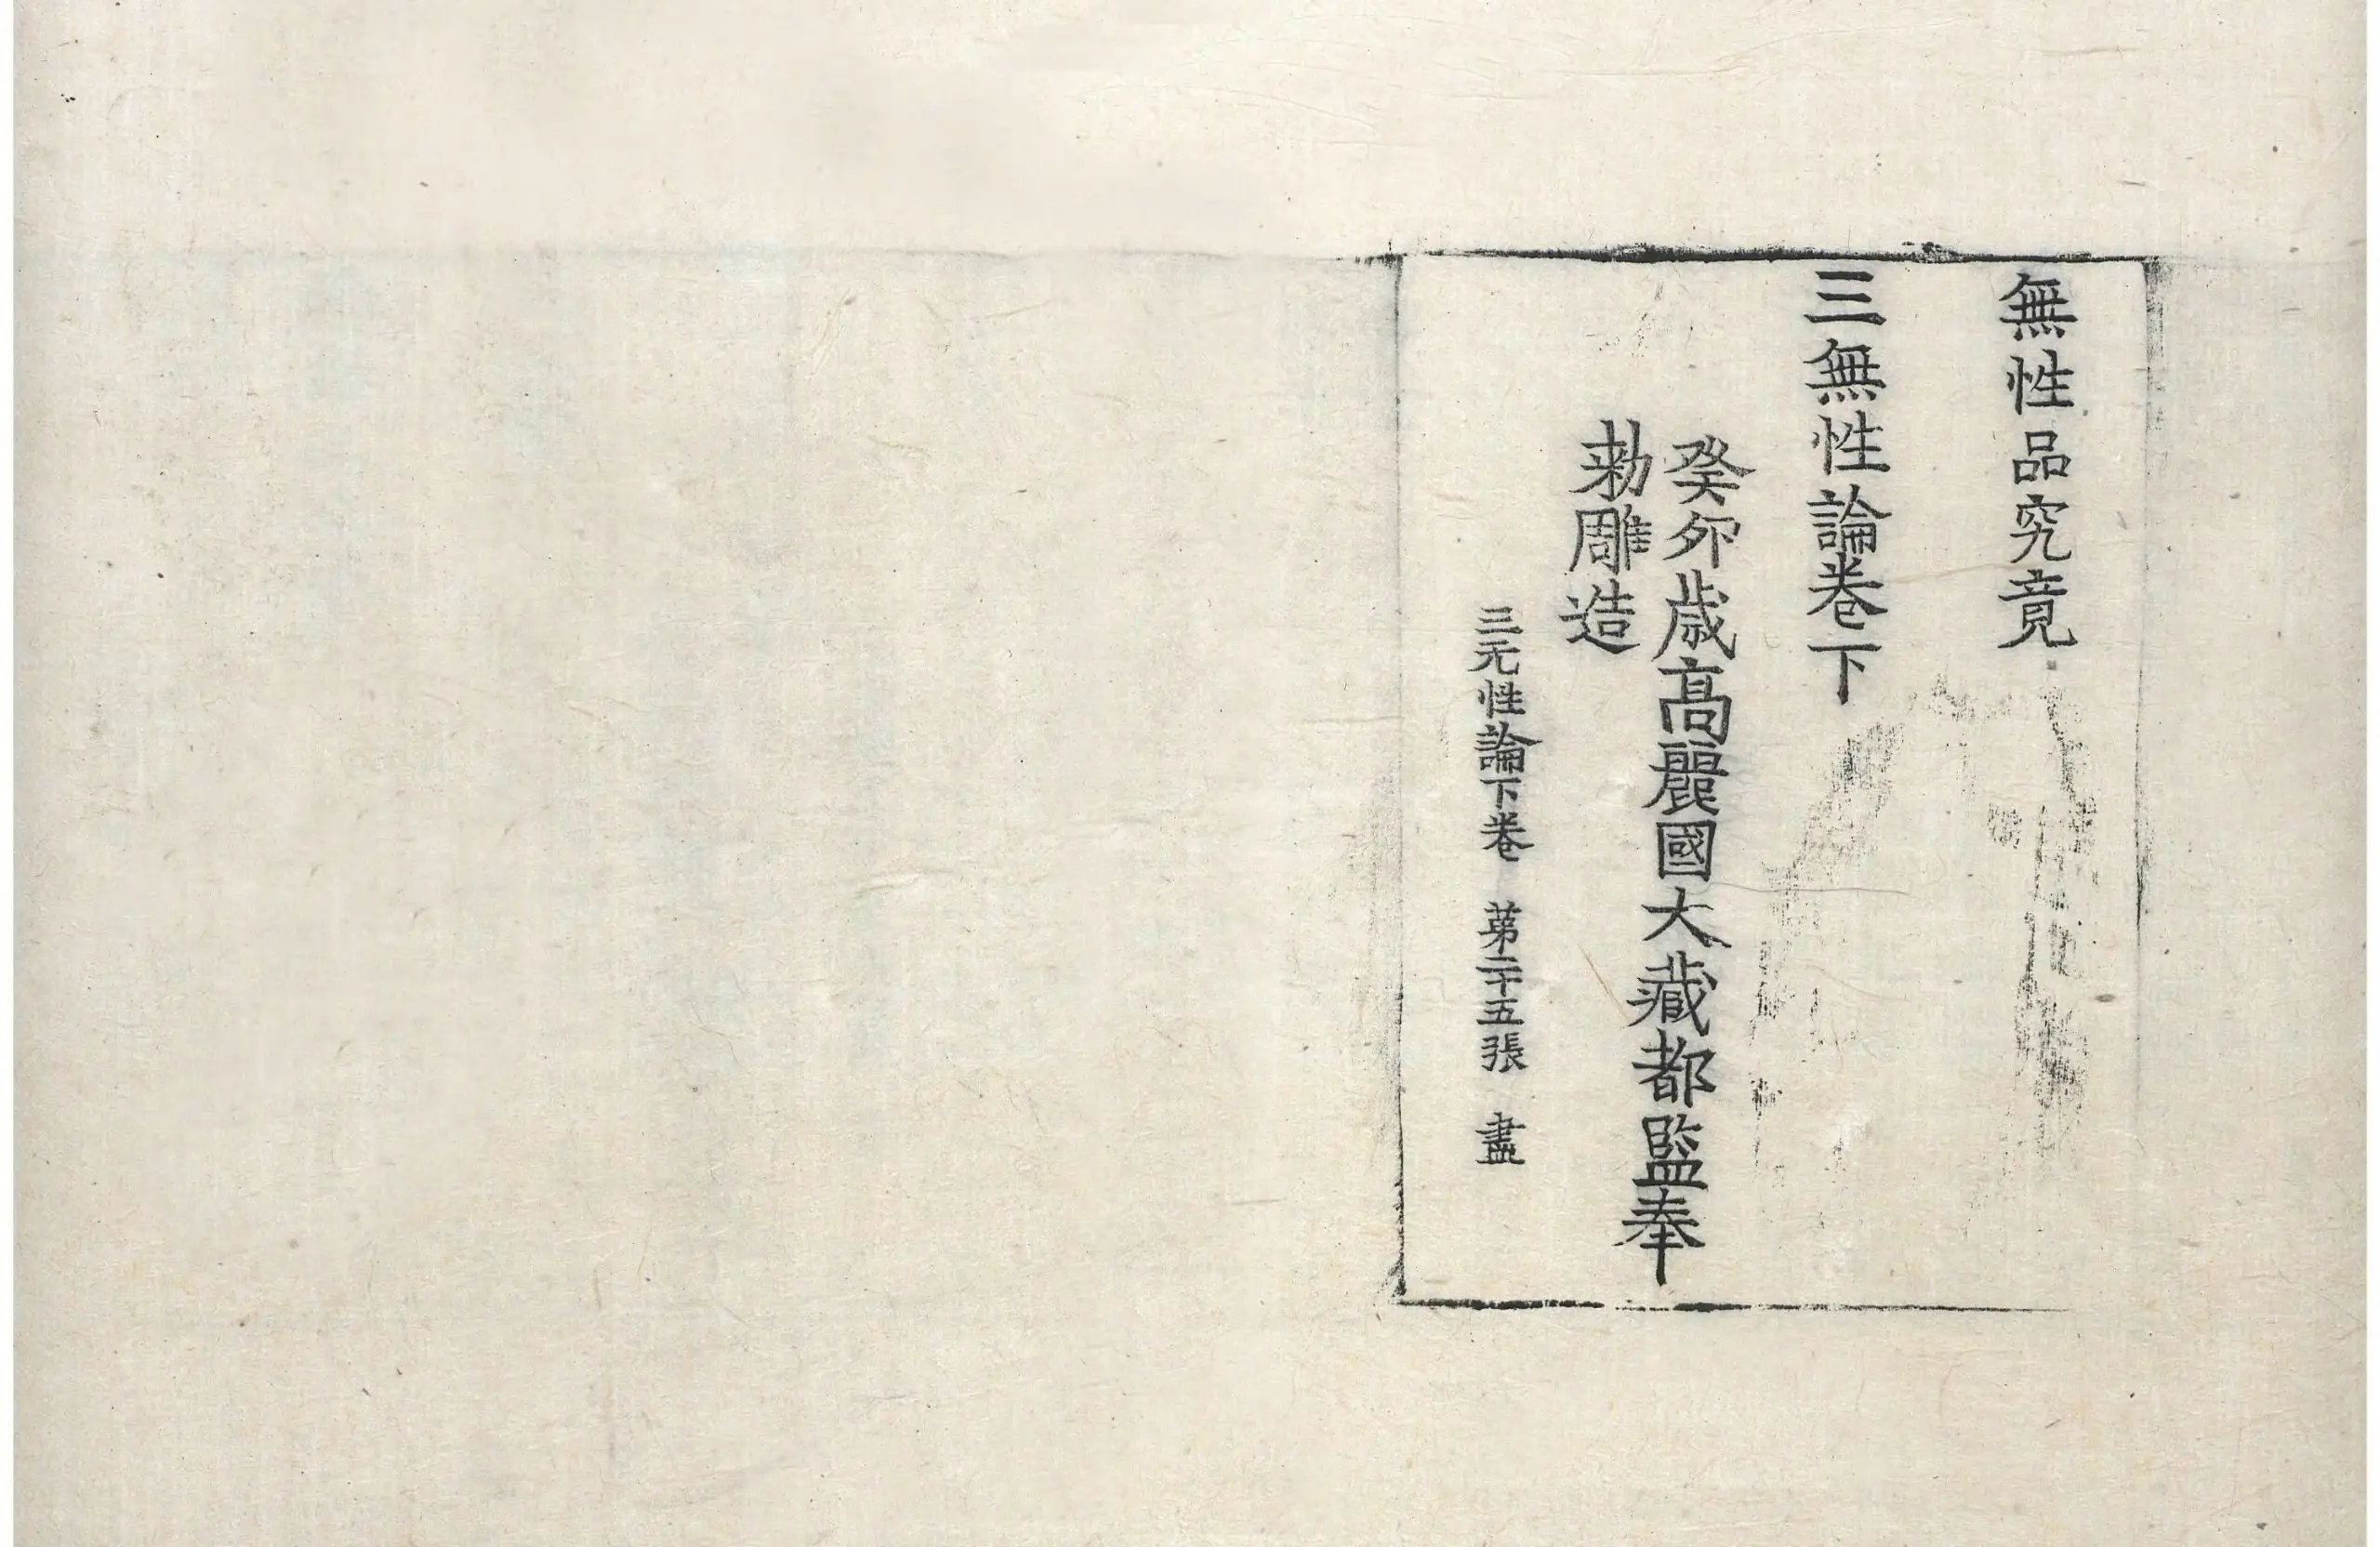 無性品究竟
三無性論卷下
癸卯歳高麗國大藏都監奉
勅雕造
三无性論下卷 苐二十五張 盡